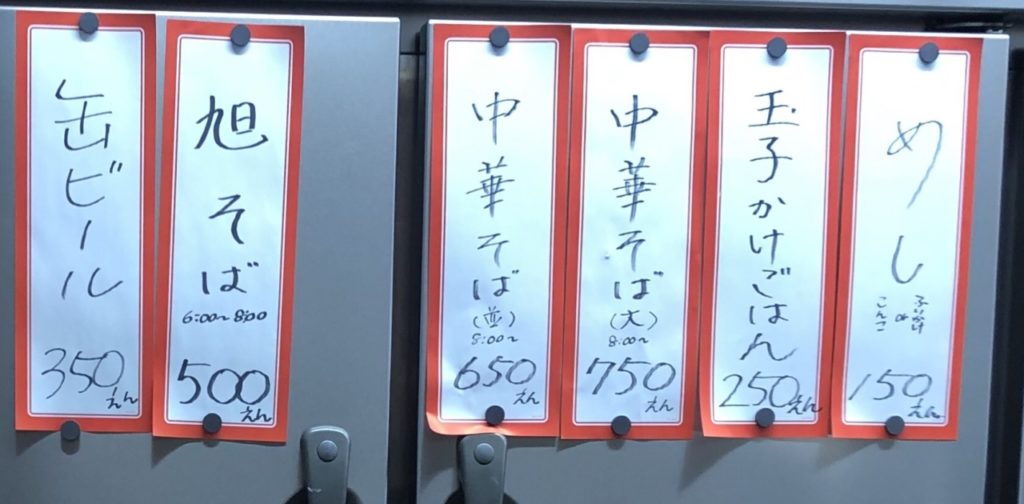 めし
ふりかけ
or
こんこ
150えん
玉子かけごはん
250えん
中華そば
(大)
8:00〜
750えん
中華そば
(並)
8:00〜
650えん
旭そば
6:00〜8:00
500えん
缶ビール
350えん